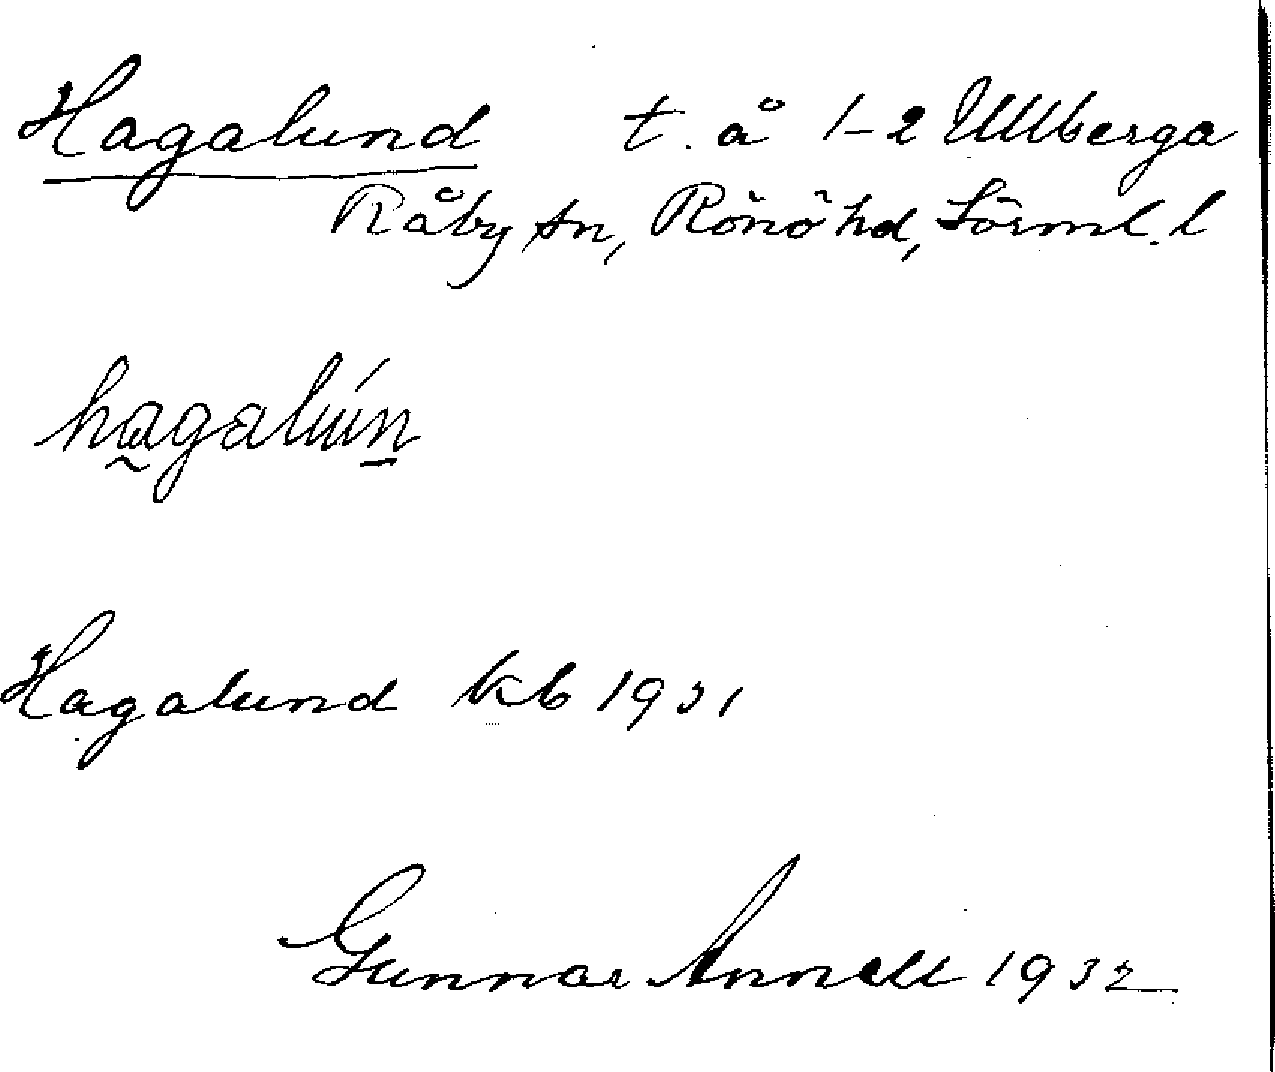 Hagalund t. å 1-2 Ullberga
Råby sn, Rönö hd, Sörml. l
hagalún
Hagalund kb 1931
Gunnar Annell 1932